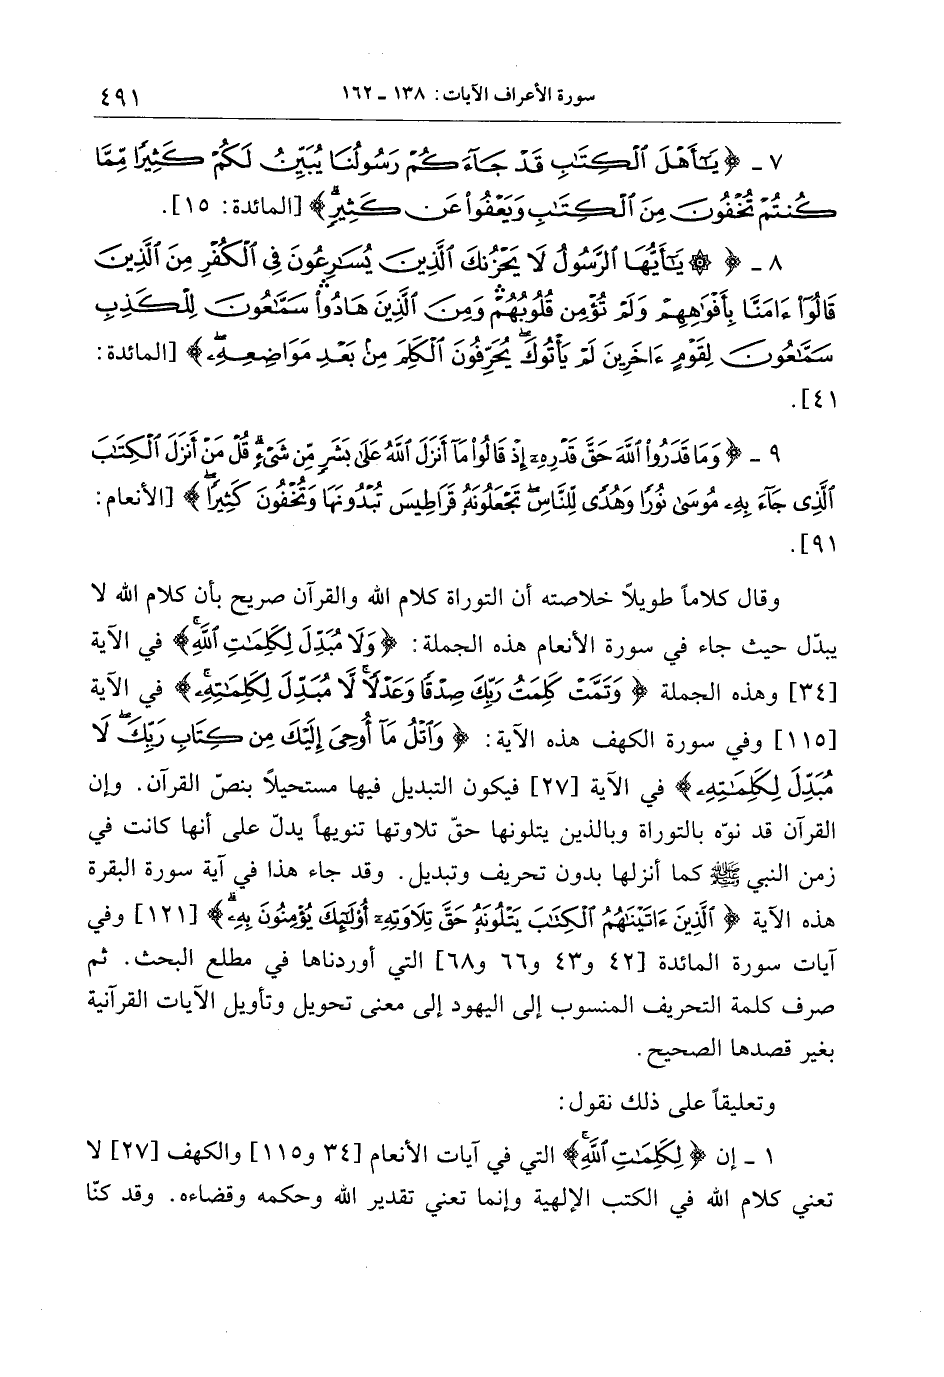 سورة الأعراف الآيات: ١٣٨ ـ ١٦٢ ٤٩١
٧ ـ ﴿ يَٰٓأَهْلَ ٱلْكِتَٰبِ قَدْ جَآءَكُمْ رَسُولُنَا يُبَيِّنُ لَكُمْ كَثِيرًا مِّمَّا
كُنتُمْ تُخْفُونَ مِنَ ٱلْكِتَٰبِ وَيَعْفُوا۟ عَن كَثِيرٍۢ ۚ﴾ [المائدة: ١٥].
٨ ـ ﴿ ۞ يَٰٓأَيُّهَا ٱلرَّسُولُ لَا يَحْزُنكَ ٱلَّذِينَ يُسَٰرِعُونَ فِى ٱلْكُفْرِ مِنَ ٱلَّذِينَ
قَالُوٓا۟ ءَامَنَّا بِأَفْوَٰهِهِمْ وَلَمْ تُؤْمِن قُلُوبُهُمْ ۛ وَمِنَ ٱلَّذِينَ هَادُوا۟ ۛ سَمَّٰعُونَ لِلْكَذِبِ
سَمَّٰعُونَ لِقَوْمٍ ءَاخَرِينَ لَمْ يَأْتُوكَ ۖ يُحَرِّفُونَ ٱلْكَلِمَ مِنۢ بَعْدِ مَوَاضِعِهِۦ ۖ﴾ [المائدة:
٤١].
٩ ـ ﴿ وَمَا قَدَرُوا۟ ٱللَّهَ حَقَّ قَدْرِهِۦٓ إِذْ قَالُوا۟ مَآ أَنزَلَ ٱللَّهُ عَلَىٰ بَشَرٍ مِّن شَىْءٍ ۗ قُلْ مَنْ أَنزَلَ ٱلْكِتَٰبَ
ٱلَّذِى جَآءَ بِهِۦ مُوسَىٰ نُورًا وَهُدًى لِّلنَّاسِ ۖ تَجْعَلُونَهُۥ قَرَاطِيسَ تُبْدُونَهَا وَتُخْفُونَ كَثِيرًا ۖ ﴾ [الأنعام:
٩١].
وقال كلاماً طويلاً خلاصته أن التوراة كلام الله والقرآن صريح بأن كلام الله لا
يبدّل حيث جاء في سورة الأنعام هذه الجملة: ﴿وَلَا مُبَدِّلَ لِكَلِمَٰتِ ٱللَّهِ ۚ﴾ في الآية
[٣٤] وهذه الجملة ﴿ وَتَمَّتْ كَلِمَتُ رَبِّكَ صِدْقًا وَعَدْلًا ۚ لَّا مُبَدِّلَ لِكَلِمَٰتِهِۦ ۚ﴾ في الآية
[١١٥] وفي سورة الكهف هذه الآية: ﴿ وَٱتْلُ مَآ أُوحِىَ إِلَيْكَ مِن كِتَابِ رَبِّكَ ۖ لَا
مُبَدِّلَ لِكَلِمَٰتِهِۦ﴾ في الآية [٢٧] فيكون التبديل فيها مستحيلاً بنصّ القرآن. وإن
القرآن قد نوّه بالتوراة وبالذين يتلونها حقّ تلاوتها تنويهاً يدلّ على أنها كانت في
زمن النبي ﷺ كما أنزلها بدون تحريف وتبديل. وقد جاء هذا في آية سورة البقرة
هذه الآية ﴿ ٱلَّذِينَ ءَاتَيْنَٰهُمُ ٱلْكِتَٰبَ يَتْلُونَهُۥ حَقَّ تِلَاوَتِهِۦٓ أُو۟لَٰٓئِكَ يُؤْمِنُونَ بِهِۦ ۗ﴾ [١٢١] وفي
آيات سورة المائدة [٤٢ و٤٣ و٦٦ و٦٨] التي أوردناها في مطلع البحث. ثم
صرف كلمة التحريف المنسوب إلى اليهود إلى معنى تحويل وتأويل الآيات القرآنية
بغير قصدها الصحيح.
وتعليقاً على ذلك نقول:
١ ـ إن ﴿ لِكَلِمَٰتِ ٱللَّهِ ۚ﴾ التي في آيات الأنعام [٣٤ و١١٥] والكهف [٢٧] لا
تعني كلام الله في الكتب الإلهية وإنما تعني تقدير الله وحكمه وقضاءه. وقد كنّا